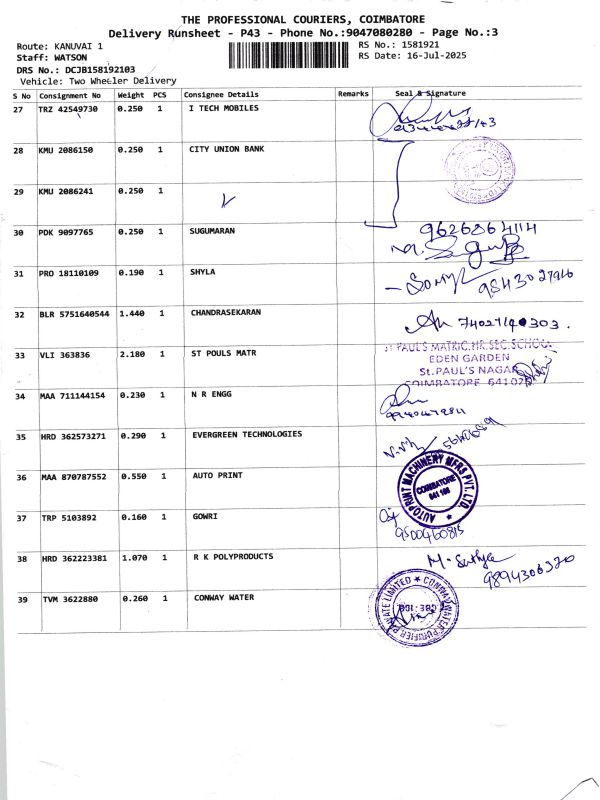 THE PROFESSIONAL COURIERS, COIMBATORE
Delivery Runsheet - P43 - Phone No.:9047080280 - Page No.:3
Route: KANUVAI 1
Staff: WATSON
DRS No.: DCJB158192103
Vehicle: Two Wheeler Delivery
RS No.: 1581921
RS Date: 16-Jul-2025
S No Consignment No Weight PCS Consignee Details Remarks Seal & Signature
27 TRZ 42549730 0.250 1 I TECH MOBILES
28 KMU 2086150 0.250 1 CITY UNION BANK
29 KMU 2086241 0.250 1
30 PDK 9097765 0.250 1 SUGUMARAN 9626864114
31 PRO 18110109 0.190 1 SHYLA 9843027916
32 BLR 5751640544 1.440 1 CHANDRASEKARAN
33 VLI 363836 2.180 1 ST POULS MATR
ST PAUL'S MATRIC.HR.SEC.SCHOOL
EDEN GARDEN
St.PAUL'S NAGAR
COIMBATORE 641025
34 MAA 711144154 0.230 1 N R ENGG
35 HRD 362573271 0.290 1 EVERGREEN TECHNOLOGIES
36 MAA 870787552 0.550 1 AUTO PRINT
AUTOPRINT MACHINERY MFRS PVT. LTD.
COIMBATORE
641 108
37 TRP 5103892 0.160 1 GOWRI 9500460815
38 HRD 362223381 1.070 1 R K POLYPRODUCTS 9894306320
39 TVM 3622880 0.260 1 CONWAY WATER
CONWAY WATER PURIFIER PRIVATE LIMITED